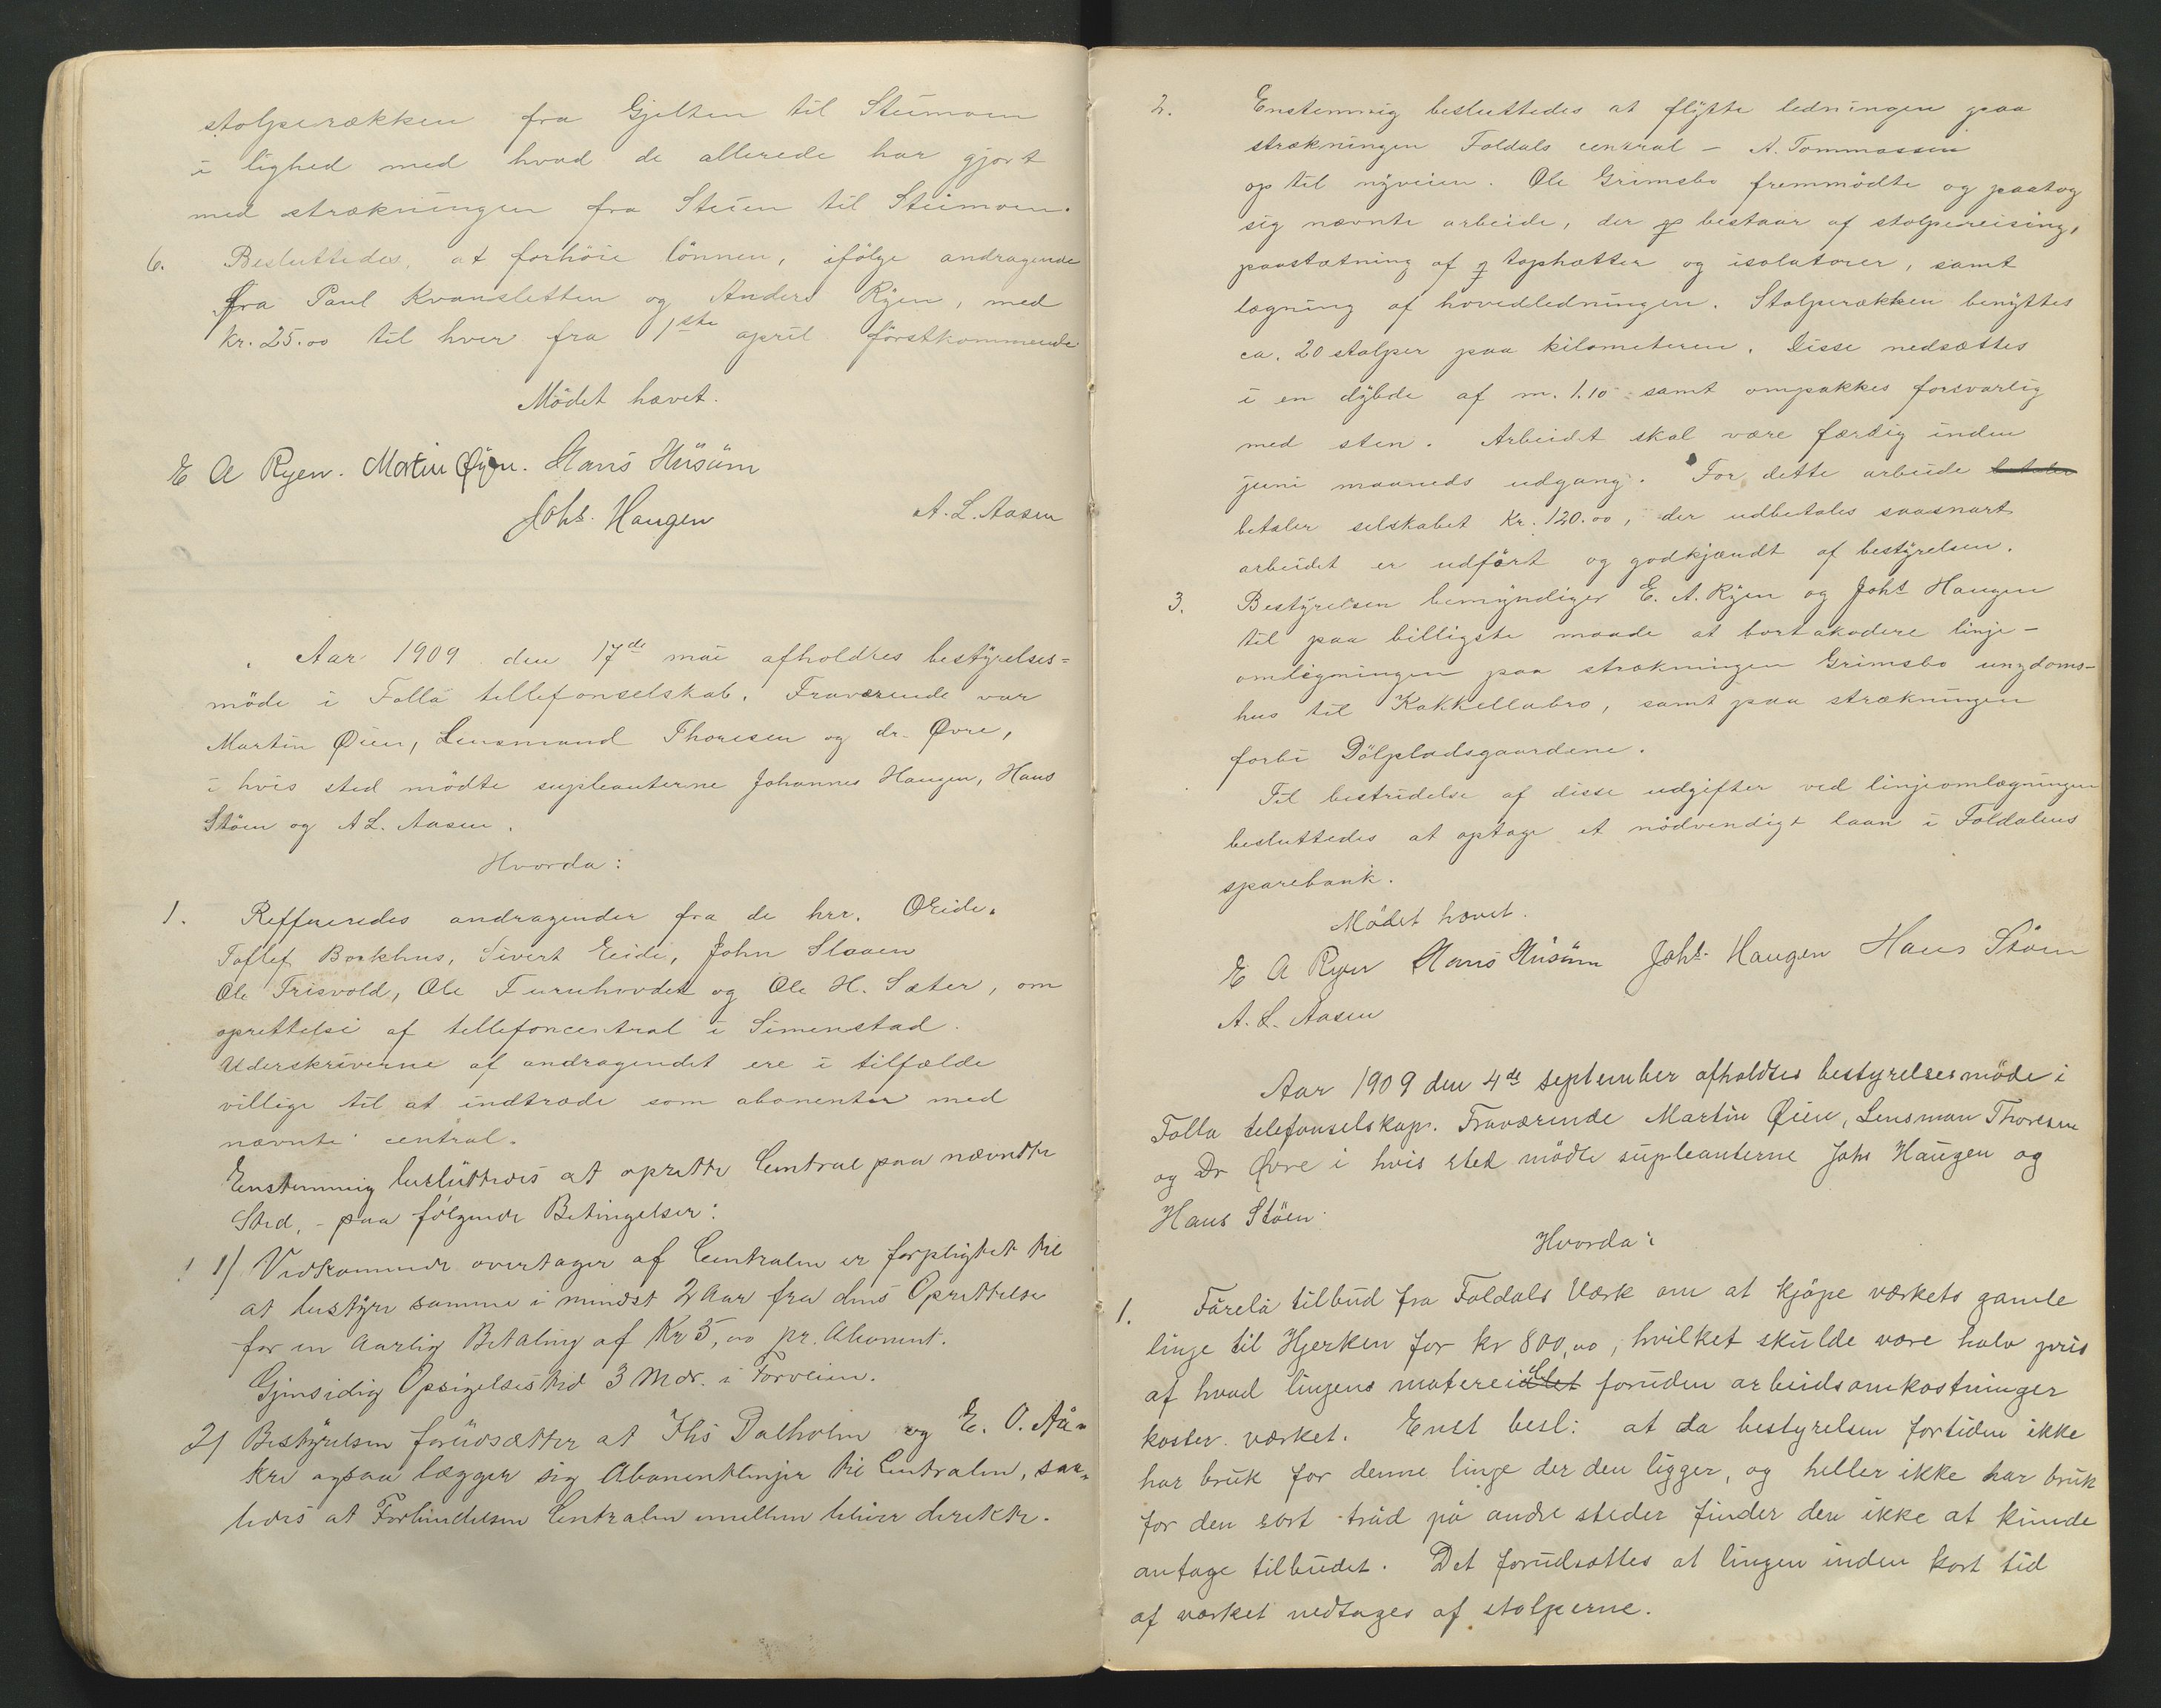 stolperækken fra Gjelten til Steimoen
i lighed med hvad de allerede har gjort
med strækningen fra Steien til Steimoen.
6. Besluttedes, at forhöie lönnen, ifölge andragende
fra Paul Kvansletten og Anders Ryen, med
kr. 25.00 til hver fra 1ste april förstkommende
Mödet hævet.
E A Ryen. Martin Øyen. Hans Husum
Johs. Haugen A. L. Aasen
Aar 1909 den 17de mai afholdtes bestyrelses=
möde i Folla tellefonselskab. Fraværende var
Martin Øien, Lensmand Thoresen og dr. Øvre,
i hvis sted mödte supleanterne Johannes Haugen, Hans
Stöen og A L. Aasen.
Hvorda:
1. Reffereredes andragender fra de hrr. O Eide.
Toflef Brekhus, Sivert Eide, John Slaaen
Ole Trisvold, Ole Furuhovdet og Ole H. Sæter, om
oprettelse af tellefoncentral i Simenstad.
Uderskriverne af andragendet ere i tilfælde
villige til at indtræde som abonenter med
nævnte central.
Enstemmig besluttedes at oprette Central paa nævndte
Sted, - paa følgende Betingelser:
1) Vedkommende overtager af Centralen er forpligtet til
at bestyre samme i mindst 2 Aar fra dens Oprettelse
for en Aarlig Betaling af Kr 5,00 pr. Abonent.
Gjensidig Opsigelsestid 3 Mdr. i Forveien.
2) Bestyrelsen forudsætter at Ths Dalholm og E. O. Aa=
kre ogsaa lægger sig Abonentlinjer til Centralen, saa=
ledes at Forbindelsen Centralen imellem bliver direkte.
2. Enstemmig besluttedes at flytte ledningen paa
strækningen Foldals central - A. Tommassen
op til nyveien. Ole Grimsbo fremmödte og paatog
sig nævnte arbeide, der bestaar af stolpereising,
paasætning af tophætter og isolatorer, samt
lægning af hovedledningen. Stolperækken benyttes
ca. 20 stolper paa kilometeren. Disse nedsættes
i en dybde af m. 1.10 samt ompakkes forsvarlig
med sten. Arbeidet skal være færdig inden
juni maaneds udgang. For dette arbeide betaler
betaler selskabet Kr. 120.00, der udbetales saasnart
arbeidet er udført og godkjændt af bestyrelsen.
3. Bestyrelsen bemyndiger E. A. Ryen og Johs Haugen
til paa billigste maade at bortakodere linje-
omlegningen paa strækningen Grimsbo ungdoms-
hus til Kakkellabro, samt paa strækningen
forbi Dölpladsgaardene.
Til bestridelse af disse udgifter ved linjeomlægningen
besluttedes at optage et nödvendigt laan i Foldalens
sparebank.
Mödet hævet.
E A Ryen Hans Husum Johs. Haugen Hans Stöen
A. L. Aasen
Aar 1909 den 4de september afholdtes bestyrelsesmöde i
Folla telefonselskap. Fraværende Martin Øien, Lensman Thoresen
og Dr Øvre i hvis sted mödte supleanterne Johs Haugen og
Hans Stöen.
Hvorda:
1. Förelå tilbud fra Foldals Værk om at kjöpe værkets gamle
linje til Hjerken for kr 800,00, hvilket skulde være halv pris
af hvad linjens matereialet foruden arbeidsomkostninger
koster værket. Enst besl: at da bestyrelsen fortiden ikke
har bruk for denne linje der den ligger, og heller ikke har bruk
for den sort tråd på andre steder finder den ikke at kunde
antage tilbudet. Det forudsættes at linjen inden kort tid
af værket nedtages af stolperne.